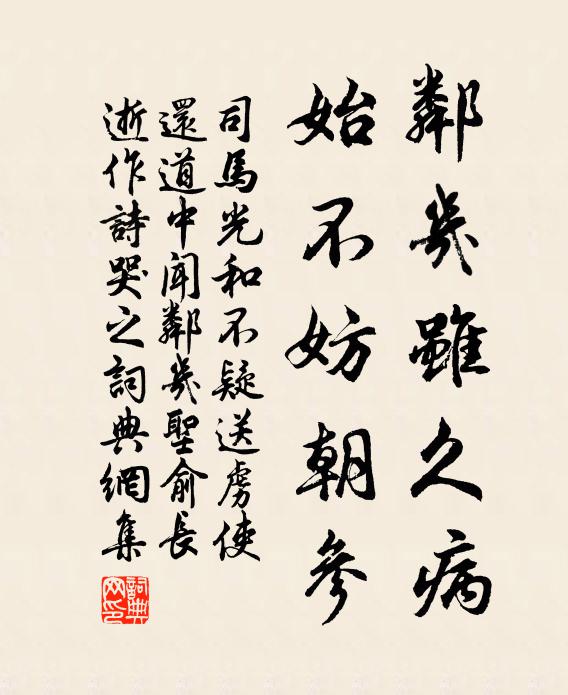 鄰幾雖久病
始不妨朝參
司馬光和不疑送虜使
還道中聞鄰幾聖俞長
逝作詩哭之詞典網集
詞典
网印